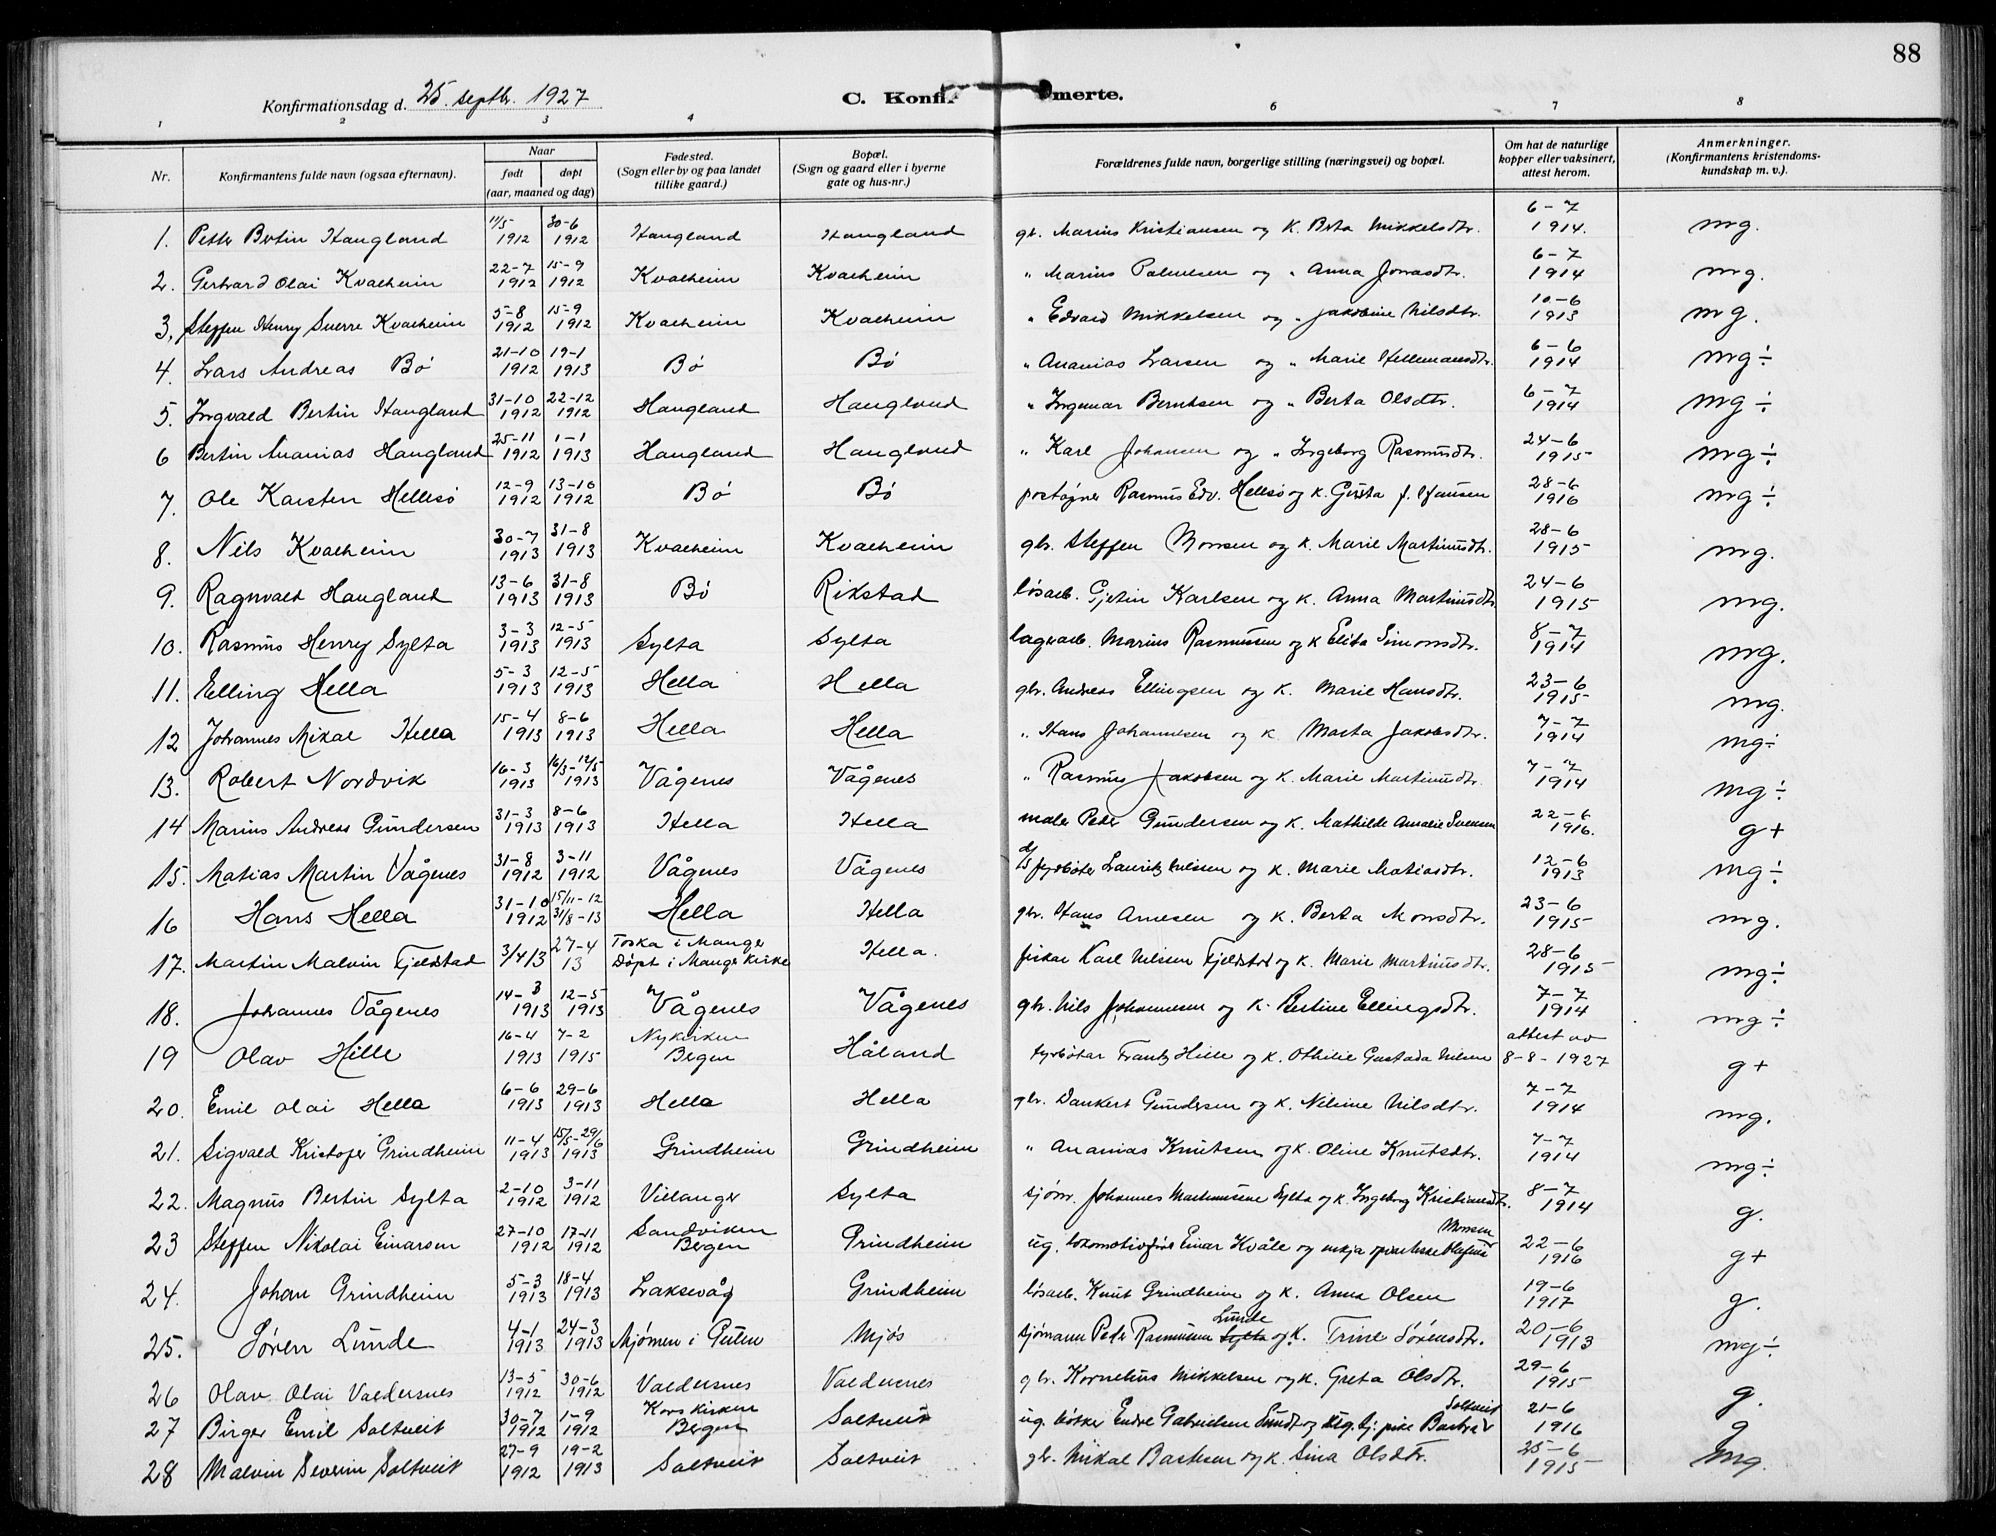 88
Konfirmationsdag d. 25. septbr. 1927
C. Konfi merte.
1 2 3 4 6 7 8
Nr. | Konfirmantens fulde navn (ogsaa efternavn). | Naar født døpt (aar, maaned og dag) | Fødested. (Sogn eller by og paa landet tillike gaard.) | Bopæl. (Sogn og gaard eller i byerne gate og hus-nr.) | Forældrenes fulde navn, borgerlige stilling (næringsvei) og bopæl. | Om hat de naturlige kopper eller vaksinert, attest herom. | Anmerkninger. (Konfirmantens kristendoms-kundskap m. v.).
1. Petter Bertin Haugland 11/5 1912 30-6 1912 Haugland Haugland gbr. Marius Kristiansen og K. Brta Mikkelsdtr. 6-7 1914. mg.
2. Gerhard Olai Kvalheim 22-7 1912 15-9 1912 Kvalheim Kvalheim " Marius Palnesen og " Anna Jonasdtr. 6-7 1914 mg.
3, Steffen Henry Sverre Kvalheim 5-8 1912 15-9 1912 Kvalheim Kvalheim " Edvard Mikkelsen og " Jakobine Nilsdtr. 10-6 1913 mg.
4. Lars Andreas Bø 21-10 1912 19-1 1913 Bø Bø " Ananias Larsen og " Marie Hellemansdtr. 6-6 1914 mg÷
5. Ingvald Bertin Haugland 31-10 1912 22-12 1912 Haugland Haugland " Ingemar Berntsen og " Berta Olsdtr. 6-7 1914 mg÷
6 Bertin Ananias Haugland 25-11 1912 1-1 1913 Haugland Haugland " Karl Johansen og " Ingeborg Rasmusdtr. 24-6 1915 mg÷
7. Ole Karsten Hellesø 12-9 1912 13-10 1912 Bø Bø poståpner Rasmus Edv. Hellesø og K. Gusta f. Hansen 28-6 1916 mg÷
8. Nils Kvalheim 30-7 1913 31-8 1913 Kvalheim Kvalheim gbr. Steffen Monsen og K. Marie Martinusdtr. 28-6 1915 mg.
9. Ragnvald Haugland 13-6 1913 31-8 1913 Bø Rikstad løsarb. Gjertin Karlsen og K. Anna Martinusdtr 24-6 1915 mg.
10. Rasmus Henry Sylta 3-3 1913 12-5 1913 Sylta Sylta lagerarb. Marius Rasmussen og K Elita Simonsdtr. 8-7 1914 mg.
11. Elling Hella 5-3 1913 12-5 1913 Hella Hella gbr. Andreas Ellingsen og K. Marie Hansdtr. 23-6 1915 mg.
12 Johannes Mikal Hella 15-4 1913 8-6 1913 Hella Hella " Hans Johannesen og K. Marta Jakobsdtr. 7-7 1914 mg÷
13. Robert Nordvik 16-3 1913 16/3-12/5 1913 Vågenes Vågenes " Rasmus Jakobsen og K. Marie Martinusdtr. 7-7 1914 mg÷
14 Marius Andreas Gundersen 31-3 1913 8-6 1913 Hella Hella maler Peder Gundersen og K. Mathilde Amalie Svensen 22-6 1916. g+
15. Matias Martin Vågenes 31-8 1912 3-11 1912 Vågenes Vågenes fyrbøter Lauritz Nilsen og K. Marie Matiasdtr. 12-6 1913 mg÷
16 Hans Hella 31-10 1912 15/11-12 31/8-13 Hella Hella gbr. Hans Arnesen og K. Berta Monsdtr. 23-6 1915 mg.
17. Martin Malvin Fjeldstad 3/4 13 27-4 13 Toska i Manger Døpt i Manger kirke Hella. fisker Karl Nilsen Fjeldstad og K. Marie Martinusdtr. 28-6 1915 mg÷
18. Johannes Vågenes 14-3 1913 12-5 1913 Vågenes Vågenes gbr. Nils Johannesen og K. Bertine Ellingsdtr. 7-7 1914 mg÷
19 Olav Hille 16-4 1913 7-2 1915 Nykirken Bergen Håland fyrbøtar Frantz Hille og K. Othilie Gustava Nilsen attest av 8-8-1927 g+
20. Emil Olai Hella 6-6 1913 29-6 1913 Hella Hella gbr. Dankert Gundersen og K. Nilsine Nilsdtr. 7-7 1914 mg.
21. Sigvald Kristofer Grindheim 11-4 1913 15/5-29/6 1913 Grindheim Grindheim " Ananias Knutsen og K. Oline Knutsdtr. 7-7 1914 mg÷
22. Magnus Bertin Sylta 2-10 1912 3-11 1912 Villanger Sylta sjøm. Johannes Martinusene Sylta og K. Ingeborg Kristiansdtr. 8-7 1914 g.
23 Steffen Nikolai Einarsen 27-10 1912 17-11 1912 Sandviken Bergen Grindheim ug. lokomotivfører Einar Kvåle og Monsen 22-6 1916 g+
24. Johan Grindheim 5-3 1913 18-4 1913 Laksevåg Grindheim løsarb. Knut Grindheim og K. Anna Olsen 19-6 1917 g.
25. Søren Lunde 4-1 1913 24-3 1913 Mjømen i Gulen Mjøs sjømann Peder Rasmussen Sylta Lunde og K. Trine Sørensdtr. 20-6 1913 mg÷
26 Olav Olai Valdersnes 13-5 1912 30-6 1912 Valdersnes Valdersnes gbr. Kornelius Mikkelsen og K. Greta Olsdtr. 29-6 1915 g.
27 Birger Emil Soltveit 30-7 1912 1-9 1912 Korskirken Bergen Soltveit ug. bøtker Endre Gabrielsen Sundt og ug. tj. pike Barbra Soltveit 21-6 1916 g
28 Malvin Severin Soltveit 27-9 1912 19-2 1913 Soltveit Soltveit gbr. Mikal Baktsen og K. Sina Olsdtr. 25-6 1915 mg.